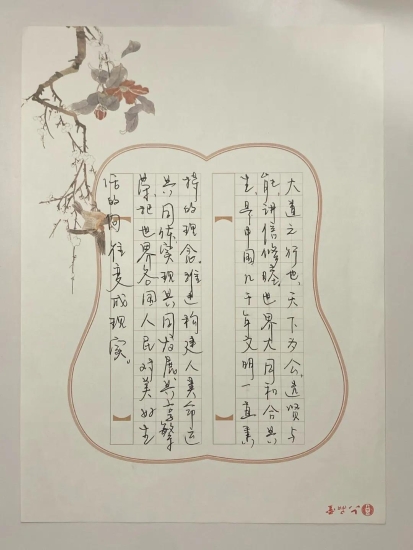 大道之行也，天下为公，选贤与
能，讲信修睦。世界大同和合共
生，是中国几千年文明一直秉
持的理念。推进构建人类命运
共同体，实现共同发展，共享繁
荣，把世界各国人民对美好生
活的向往变成现实。